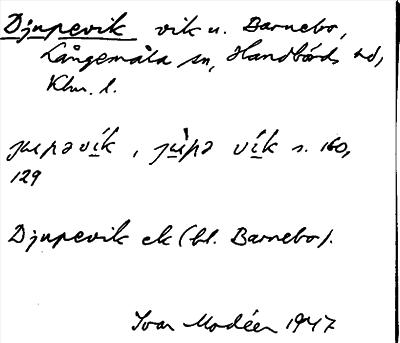 Djupevik vik u. Barnebo,
Långemåla sn, Handbörds hd,
Klm. l.
jɯpəvík, jɯ̀pə vík s. 160,
129
Djupevik ek (bl. Barnebo).
Ivar Modéer 1947